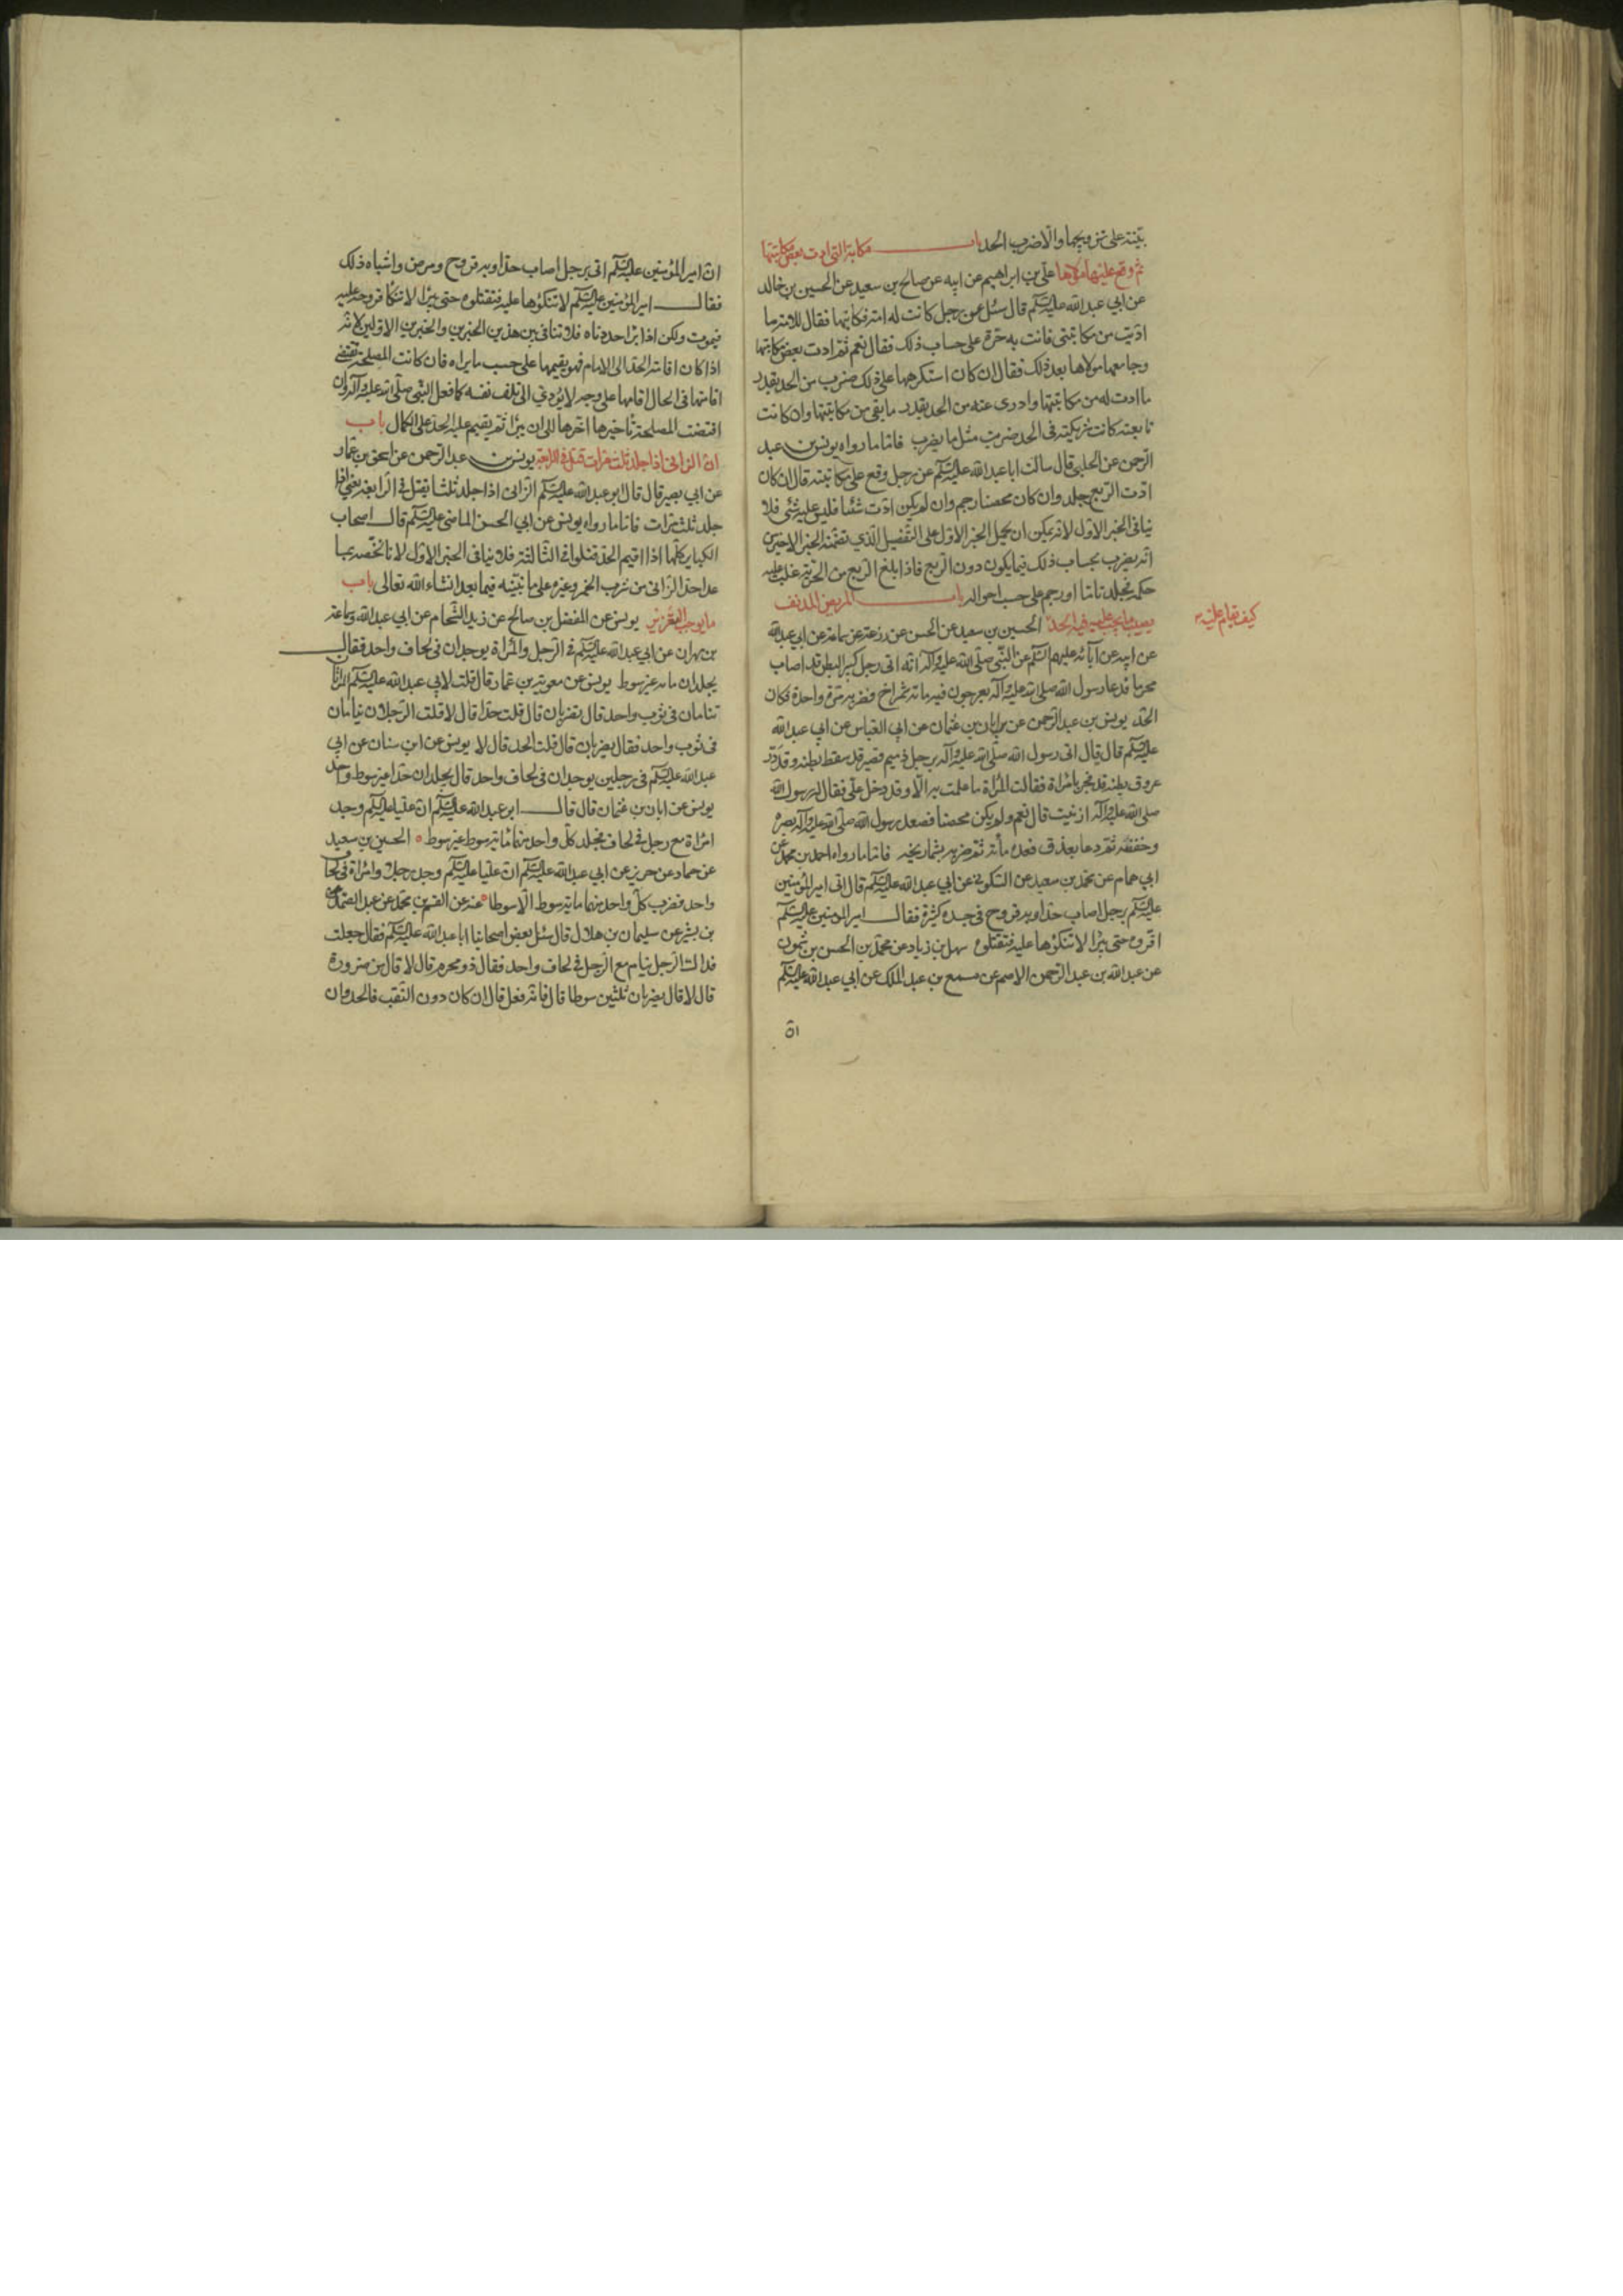 بينة على تزويجها والا ضرب الحد باب مكاتبة التى ادت بعض مكاتبتها
ثم وقع عليها مولاها على بن ابراهيم عن ابيه عن صالح بن سعيد عن الحسين بن خالد
عن ابي عبدالله عليه السلم قال سئل عن رجل كانت له امة فكاتبها فقال للامة ما
اديت من مكاتبتى فانت به حرة على حساب ذلك فقال نعم ثم ادت بعض مكاتبتها
وجامعها مولاها بعد ذلك فقال ان كان استكرهها على ذلك ضرب من الحد بقدر
ما ادت له من مكاتبتها وادرى عنه من الحد بقدر ما بقى من مكاتبتها وان كانت
تابعته كانت شريكته فى الحد ضربت مثل ما يضرب فاما ما رواه يونس بن عبد
الرحمن عن الحلبى قال سالت ابا عبدالله عليه السلم عن رجل وقع على مكاتبته قال ان كان
ادت الربع جلد وان كان محصنا رجم وان لم يكن ادت شئا فليس عليه شئ فلا
ينافى الخبر الاول لانه يمكن ان يحمل الخبر الاول على التفصيل الذي تضمنه الخبر الاخير من
انه يضرب بحساب ذلك فيما يكون دون الربع فاذا بلغ الربع من الحرية غلب عليه
حكمه فجلد تاما او رجم على حسب احواله باب المريض المدنف
يصيب ما يجب عليه فيه الحد كيف يقام عليه الحسين بن سعيد عن الحسن عن زرعة عن سماعة عن ابي عبدالله
عن ابيه عن آبائه عليهم السلم عن النبي صلى الله عليه وآله انه اتى رجل كبير البطن قد اصاب
محرما فدعا رسول الله صلى الله عليه وآله بعرجون فيه مائة شمراخ فضربه مرة واحدة فكان
الحد يونس بن عبد الرحمن عن ابان بن عثمان عن ابي العباس عن ابي عبدالله
عليه السلم قال قال اتى رسول الله صلى الله عليه وآله برجل دميم قصير قد سقط بطنه وقد در
عروق بطنه قد فجر بامراة فقالت المراة ما علمت به الا وقد دخل على فقال له رسول الله
صلى الله عليه وآله ازنيت قال نعم ولم يكن محصنا فصعد رسول الله صلى الله عليه وآله بصره
وخفضه ثم دعا بعذق فعده مأة ثم ضربه بشماريخه فاما ما رواه احمد بن محمد عن
ابي همام عن محمد بن سعيد عن السكوني عن ابي عبدالله عليه السلم قال اتى امير المؤمنين
عليه السلم برجل اصاب حدا وبه قروح في جسده كثيرة فقال امير المؤمنين عليه السلم
اقروه حتى يبرا لا تنكؤها عليه فتقتلوه سهل بن زياد عن محمد بن الحسن بن شمون
عن عبدالله بن عبد الرحمن الاصم عن مسمع بن عبد الملك عن ابي عبدالله عليه السلم
ان
ان امير المؤمنين عليه السلم اتى برجل اصاب حدا وبه قروح ومرض واشباه ذلك
فقال امير المؤمنين عليه السلم لا تنكؤها عليه فتقتلوه حتى يبرا لا تنكا قروحه عليه
فيموت ولكن اذا برا حددناه فلا تنافى بين هذين الخبرين والخبرين الاولين لانه
اذا كان اقامة الحد الى الامام فهو يقيمها على حسب ما يراه فان كانت المصلحة تقتضى
اقامتها فى الحال اقامها على وجه لا يؤدي الى تلف نفسه كما فعل النبى صلى الله عليه وآله وان
اقتضت المصلحة تاخيرها اخرها الى ان يبرا ثم يقيم عليه الحد على الكمال باب
ان الزانى اذا جلد ثلث مرات قتل فى الرابعة يونس بن عبد الرحمن عن اسحق بن عمار
عن ابي بصير قال قال ابو عبدالله عليه السلم الزانى اذا جلد ثلثا يقتل في الرابعة يعني اذا
جلد ثلث مرات فاما ما رواه يونس عن ابي الحسن الماضى عليه السلم قال اصحاب
الكباير كلها اذا اقيم الحد قتلوا فى الثالثة فلا ينافى الخبر الاول لانا نخصه بما
عدا حد الزانى من شرب الخمر وغيره على ما نبينه فيما بعد انشاء الله تعالى باب
ما يوجب التعزير يونس عن المفضل بن صالح عن زيد الشحام عن ابي عبدالله وسماعة
بن مهران عن ابي عبدالله عليه السلم فى الرجل والمراة يوجدان فى لحاف واحد فقال
يجلدان مائة غير سوط يونس عن معوية بن عمار قال قلت لابي عبدالله عليه السلم المراتان
تنامان فى ثوب واحد قال تضربان قال قلت حدا قال لا قلت الرجلان ينامان
فى ثوب واحد فقال يضربان قال قلت الحد قال لا يونس عن ابن سنان عن ابى
عبدالله عليه السلم فى رجلين يوجدان فى لحاف واحد قال يجلدان حدا غير سوط واحد
يونس عن ابان بن عثمان قال قال ابو عبدالله عليه السلم ان عليا عليه السلم وجد
امراة مع رجل في لحاف فجلد كل واحد منهما مائة سوط غير سوط الحسين بن سعيد
عن حماد عن حريز عن ابي عبدالله عليه السلم ان عليا عليه السلم وجد رجلا وامراة في لحاف
واحد فضرب كل واحد منهما مائة سوط الا سوطا عنه عن القسم بن محمد عن عبد الصمد
بن بشير عن سليمان بن هلال قال سئل بعض اصحابنا ابا عبدالله عليه السلم فقال جعلت
فداك الرجل ينام مع الرجل في لحاف واحد فقال ذو محرم قال لا قال من ضرورة
قال لا قال يضربان ثلثين سوطا قال فانه فعل قال ان كان دون الثقب فالحد وان